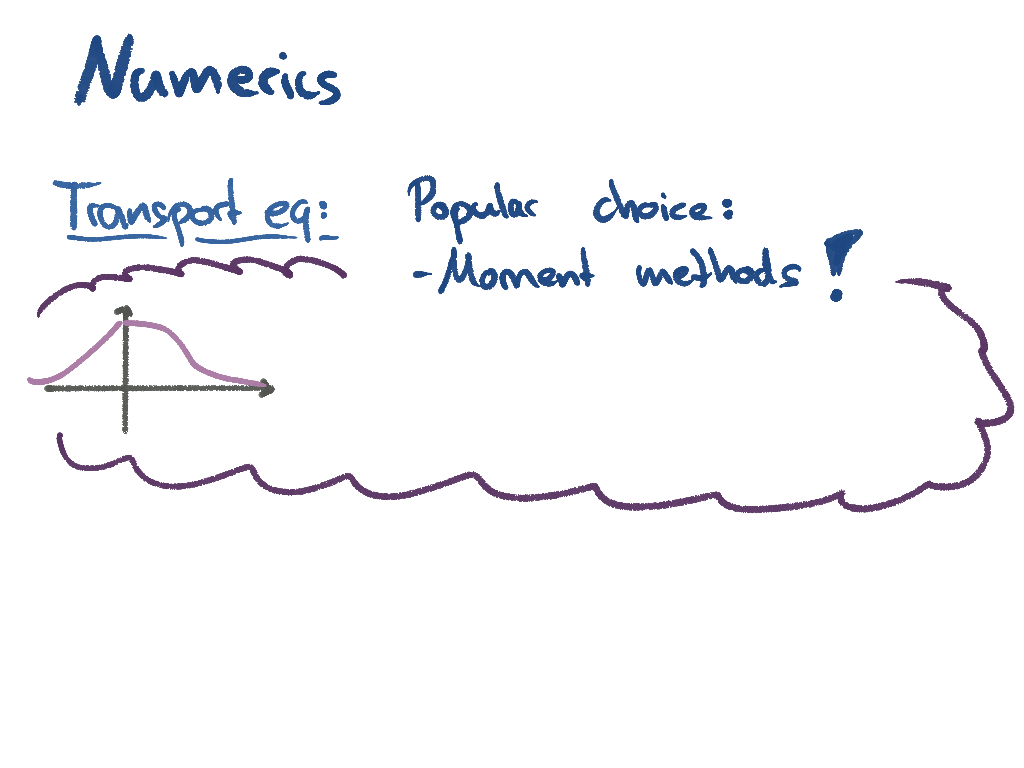 Numerics
Transport eq:
Popular choice:
- Moment methods !